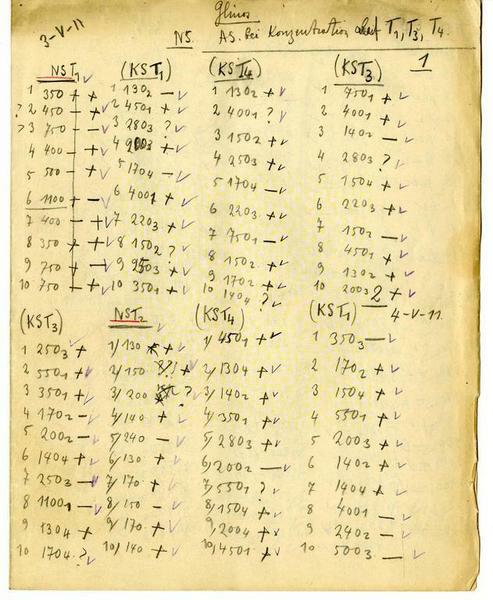 Glinos
3-V-11 NS. AS. bei Konzentration T1, T3, T4.
1
NST1 (KST1) (KST4) (KST3)
1 350 + + 1 1302 — 1 1302 + 1 7501 +
? 2 450 — + 2 4501 + 2 4001 ? 2 4001 +
? 3 750 — — 3 2803 ? 3 1502 + 3 1402 —
4 400 — + 4 2003 + 4 2503 + 4 2803 ?
5 500 — + 5 1704 — 5 1704 — 5 1504 +
6 1100 + — 6 4001 + 6 2203 + 6 2203 +
7 400 — + 7 2203 + 7 7501 — 7 1502 —
8 350 + + 8 1502 ? 8 1502 — 8 4501 +
9 750 — + 9 9503 + 9 1702 + 9 1302 +
10 750 — — 10 3501 + 10 1404 ? 10 2003 +
2
4-V-11.
(KST3) NST2 (KST4) (KST1)
1 2503 + 1/ 130 + 1/ 4501 + 1 3503 —
2 5501 + 2/ 150 + 2/ 1304 + 2 1702 +
3 3501 + 3/ 200 ? 3/ 1402 + 3 1504 +
4 1702 — 4/ 140 + 4/ 3501 + 4 5501 +
5 2002 — 5/ 240 — 5/ 2803 + 5 2003 +
6 1404 + 6/ 130 + 6/ 2002 — 6 1402 +
7 2503 — 7/ 170 + 7/ 5501 ? 7 1404 +
8 11001 — 8/ 150 — 8/ 1504 + 8 4001 —
9 1304 + 9/ 170 + 9/ 2004 + 9 2402 —
10 1704 ? 10/ 140 + 10/ 4501 + 10 5003 —